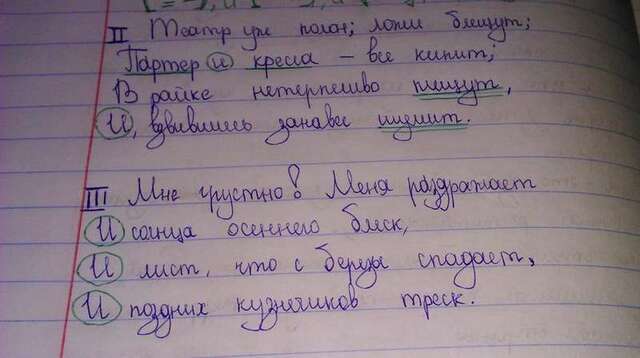 II Театр уж полон; ложи блещут;
Партер и кресла – все кипит;
В райке нетерпеливо плещут,
И, взвившись занавес шумит.
III Мне грустно! Меня раздражает
И солнца осеннего блеск,
И лист, что с берёза спадает,
И поздних кузнечиков треск.